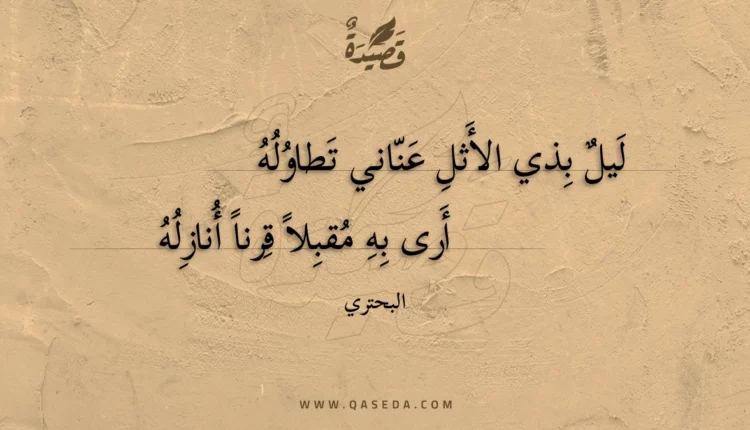 قَصِيدَةٌ
لَيلٌ بِذي الأَثلِ عَنّاني تَطاوُلُهُ
أَرى بِهِ مُقبِلاً قِرناً أُنازِلُهُ
البحتري
WWW.QASEDA.COM